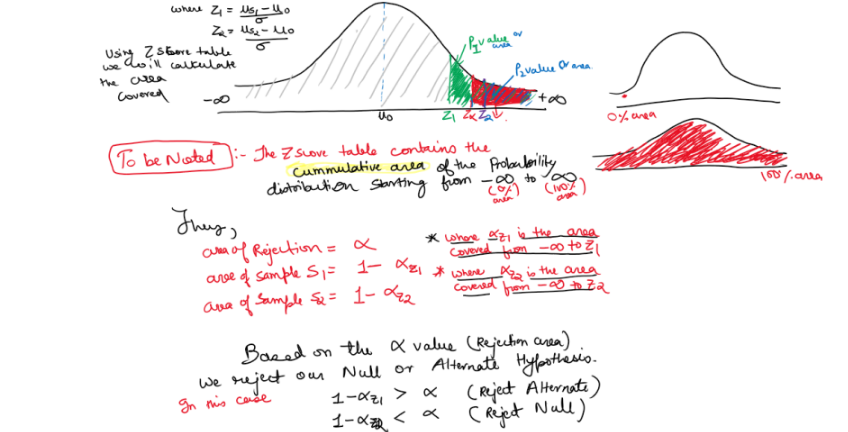 where Z1 = us1 - u0 / σ
Z2 = us2 - u0 / σ
Using Z score table
we will calculate
the area
covered
P1 value or area
P2 value or area
-∞
+∞
u0
Z1 Zα Z2
0% area
100% area
To be Noted :- The Z score table contains the
cummulative area of the Probability
distribution starting from -∞ to ∞
(0% area) (100% area)
They,
area of Rejection = α
area of sample S1 = 1 - αZ1
area of sample S2 = 1 - αZ2
* where αZ1 is the area
covered from -∞ to Z1
* where, αZ2 is the area
covered from -∞ to Z2
Based on the α value (Rejection area)
we reject our Null or Alternate Hypothesis.
In this case
1-αZ1 > α (Reject Alternate)
1-αZ2 < α (Reject Null)